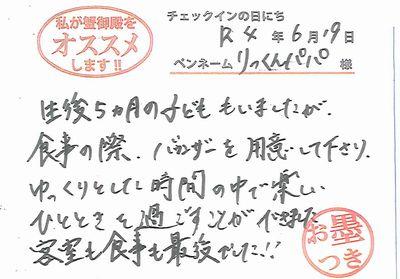 私が蟹御殿を
オススメ
します!!
チェックインの日にち
R4年6月19日
ペンネーム りっくんパパ 様
生後5ヵ月の子どももいましたが、
食事の際、バウンサーを用意して下さり、
ゆっくりとした時間の中で楽しい
ひとときを過ごすことができました
客室も食事も最後でした!!
お墨
つき